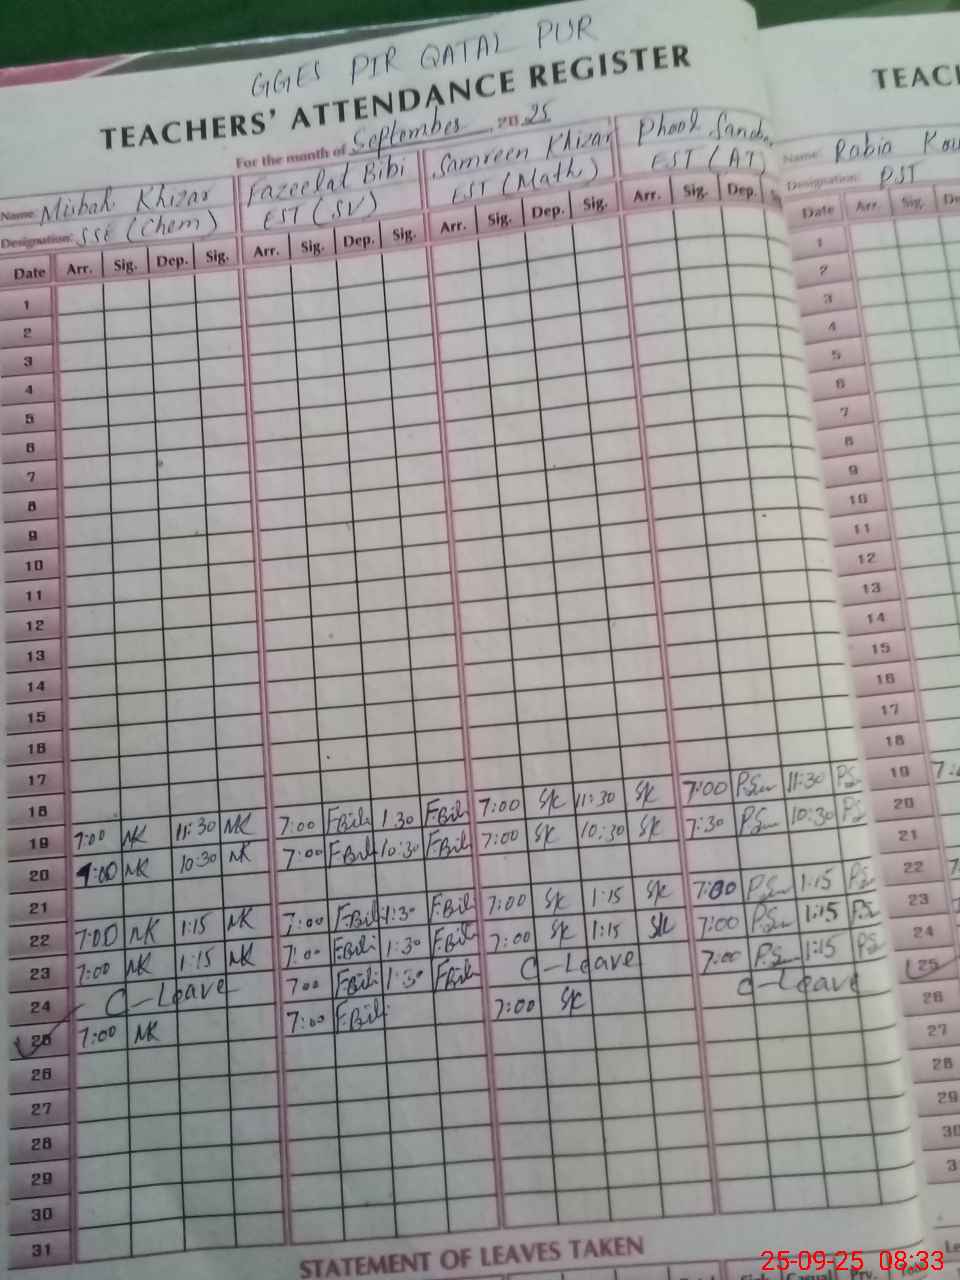 GGES PIR QATAL PUR
TEACHERS' ATTENDANCE REGISTER
TEACH
For the month of September 2025
Name: Misbah Khizar Fazeelat Bibi Samreen Khizar Phool
Name: Rabia
Designation: SSE (Chem) EST (SV) EST (Math) EST (AT)
Designation: PST
Date Arr. Sig. Dep. Sig. Arr. Sig. Dep. Sig. Arr. Sig. Dep. Sig. Arr. Sig. Dep. Date Arr. Sig.
1 1
2 2
3 3
4 4
5 5
6 6
7 7
8 8
9 9
10 10
11 11
12 12
13 13
14 14
15 15
16 16
17 17
18 18
19 7:00 MK 11:30 MK 7:00 F.Bibi 1:30 F.Bibi 7:00 SK 11:30 SK 7:00 11:30 19
20 MK 10:30 MK 7:00 F.Bibi 10:30 F.Bibi 7:00 SK 10:30 SK 7:30 10:30 20
21 21
22 7:00 MK 1:15 MK 7:00 F.Bibi 1:30 F.Bibi 7:00 SK 1:15 SK 7:00 1:15 22
23 7:00 MK 1:15 MK 7:00 F.Bibi 1:30 F.Bibi 7:00 SK 1:15 SK 7:00 1:15 23
24 C-Leave 7:00 F.Bibi 1:30 F.Bibi C-Leave 7:00 1:15 24
25 7:00 MK 7:00 F.Bibi 7:00 SK C-Leave 25
26 26
27 27
28 28
29 29
30 30
31
STATEMENT OF LEAVES TAKEN
25-09-25 08:33
Casual